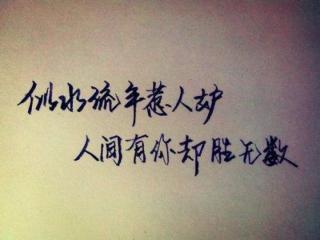 似水流年惹人妒
人间有你却胜无数